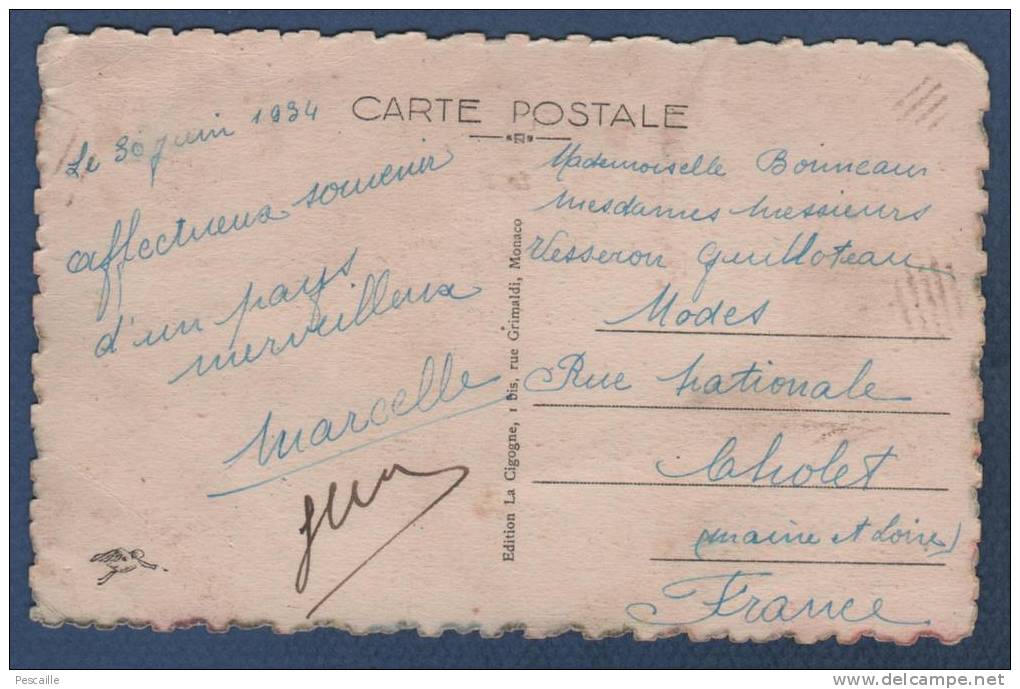 CARTE POSTALE
Le 30 juin 1934
affectueux souvenir
d'un pays
merveilleux
Marcelle
Edition La Cigogne, 1 bis, rue Grimaldi, Monaco
Mademoiselle Bonneau
Mesdames Messieurs
Vesseron Guilloteau
Modes
Rue Nationale
Cholet
(Maine et Loire)
France
Pescaille
www.delcampe.net